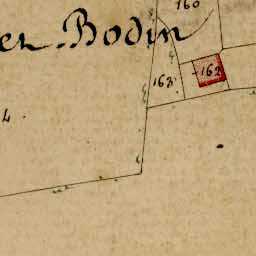 160
er Bodin
162
163
4